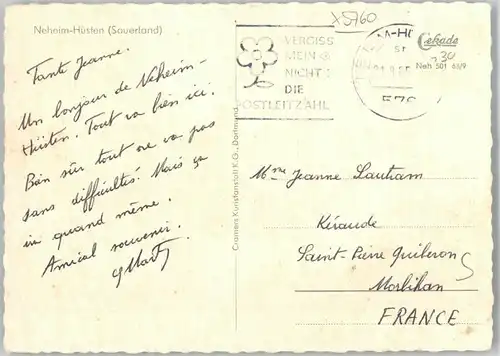 Neheim-Hüsten (Sauerland)
Tante Jeanne.
Un bonjour de Neheim-
Hüsten. Tout va bien ici.
Bän sûr tout ne va pas
sans difficultés! Mais ça
in quand même.
Amical souvenir.
x5760
VERGISS
MEIN
NICHT
DIE
POSTLEITZAHL
M-H
Cekade
230
Neh 501 63/9
Cramers Kunstanstalt K.G., Dortmund
Mme Jeanne Lautram
Kéraude
Saint-Pierre Quiberon
Morbihan
FRANCE